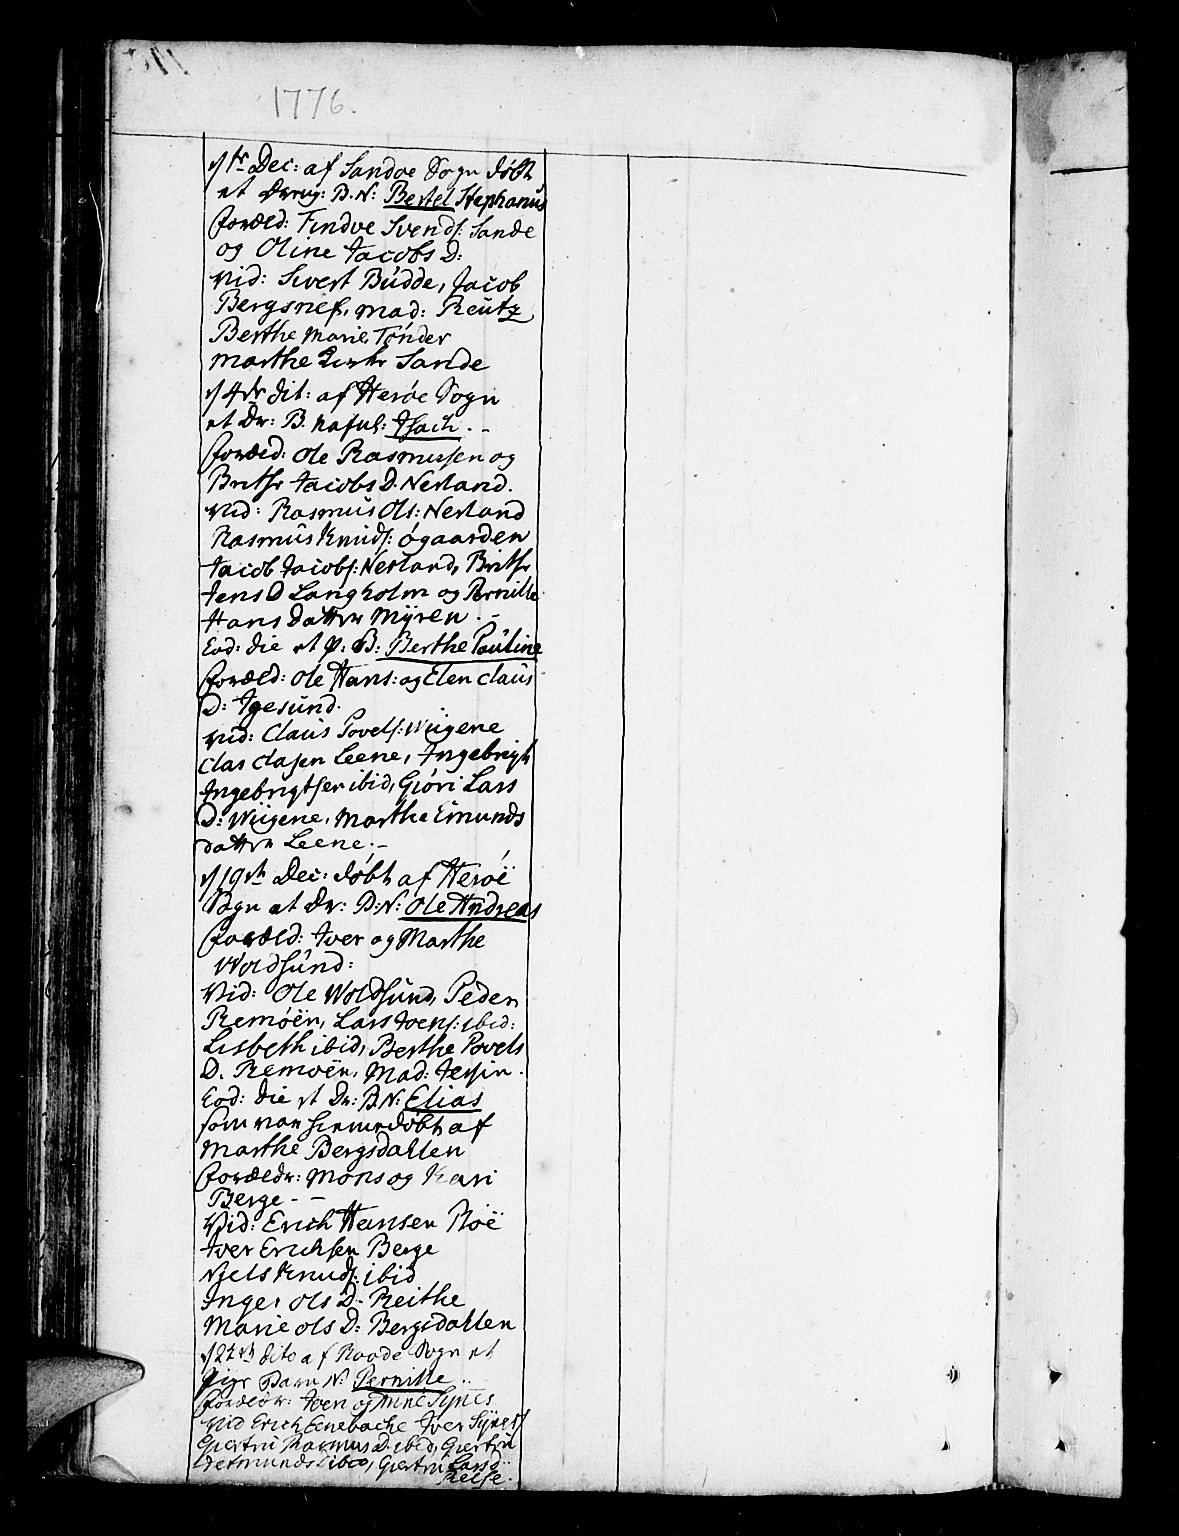 1776.
d 1ste Dec: af Sandøe Sogn døbt
et Dreng: B. N: Bertel Stephanus
foræld: Findve Svends: Sande
og Oline Jacobs D:
Vid: Sivert Budde, Jacob
Bergsnes, Mad: Reutz
Berthe Marie Tønder
Marthe Sande
d 4de dit: af Herøe Sogn
et Dr: B. Nafnl: Isach. -
foræld: Ole Rasmussen og
Brithe Jacobs D. Nerland.
Vid: Rasmus Ols: Nerland
Rasmus Knuds: Øgaarden
Jacob Jacobs: Nerland, Brithe
Jens D Langholm og Pernille
Hans Datter Myren. -
Eod: die et P: B: Berthe Pauline
foræld: Ole Hans: og Elen Claus
D: Igesund.
Vid: Claus Povels: Wiigene
Clas Clasen Leene, Ingebrigt
Ingebrigtsen ibid, Giøri Lars
D: Wiigene, Marthe Eimunds
datter Leene. -
d 19de Dec: døbt af Herøe
Sogn et Dr: B: N: Ole Andreas
foræld: Iver og Marthe
Woldsund:
Vid: Ole Woldsund, Peder
Remøen, Lars Ivers: ibid:
Lisbeth ibid, Berthe Povels
D. Remøen, Mad: Jersin.
Eod: die et Dr: B.N: Elias
som var hiemedøbt af
Marthe Bergsdahlen
forældr: Mons og Kari
Berge - -
Vid: Erich Hansen Røe
Iver Erichsen Berge
Niels Knuds: ibid
Inger Ols D: Reithe
Marie Ols D: Bergsdahlen
d 22de dito af Raade Sogn et
Pige Barn N: Pernille..
forældr: Iver og Anne Synes
Vid Erich Eenebache Iver Synes
Giertru Rasmus D. ibid, Giertru
ibid, Giertru Lars D